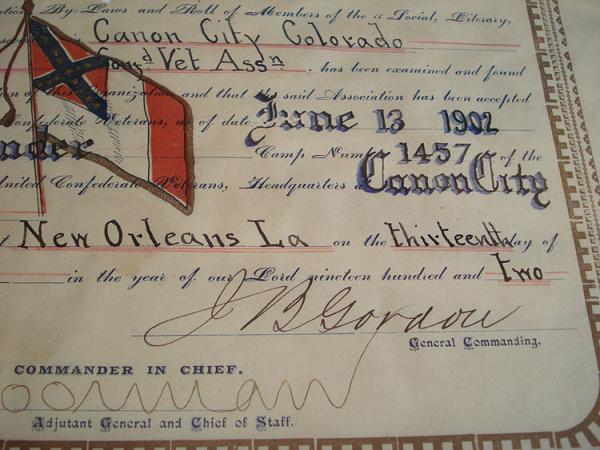 By-Laws and Roll of Members of the a Social, Literary,
Canon City Colorado
Conf'd Vet Assn, has been examined and found
Organization and that the said Association has been accepted
Confederate Veterans, as of date June 13 1902
Camp Num 1457 of the
United Confederate Veterans, Headquarters at Canon City
New Orleans La on the thirteenth day of
in the year of our Lord nineteen hundred and two
J B Gordon
General Commanding.
COMMANDER IN CHIEF.
Adjutant General and Chief of Staff.